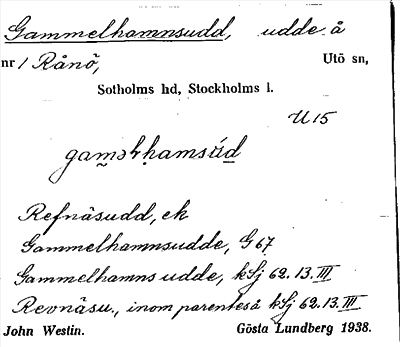 Gammelhamnsudd, udde å
nr 1 Rånö, Utö sn,
Sotholms hd, Stockholms l.
U 15
Refnäsudd, ek
Gammelhamnsudde, G 67
Gammelhamns udde, kSj 62.13.III
Revnäsu., inom parentes å kSj 62.13.III
John Westin. Gösta Lundberg 1938.